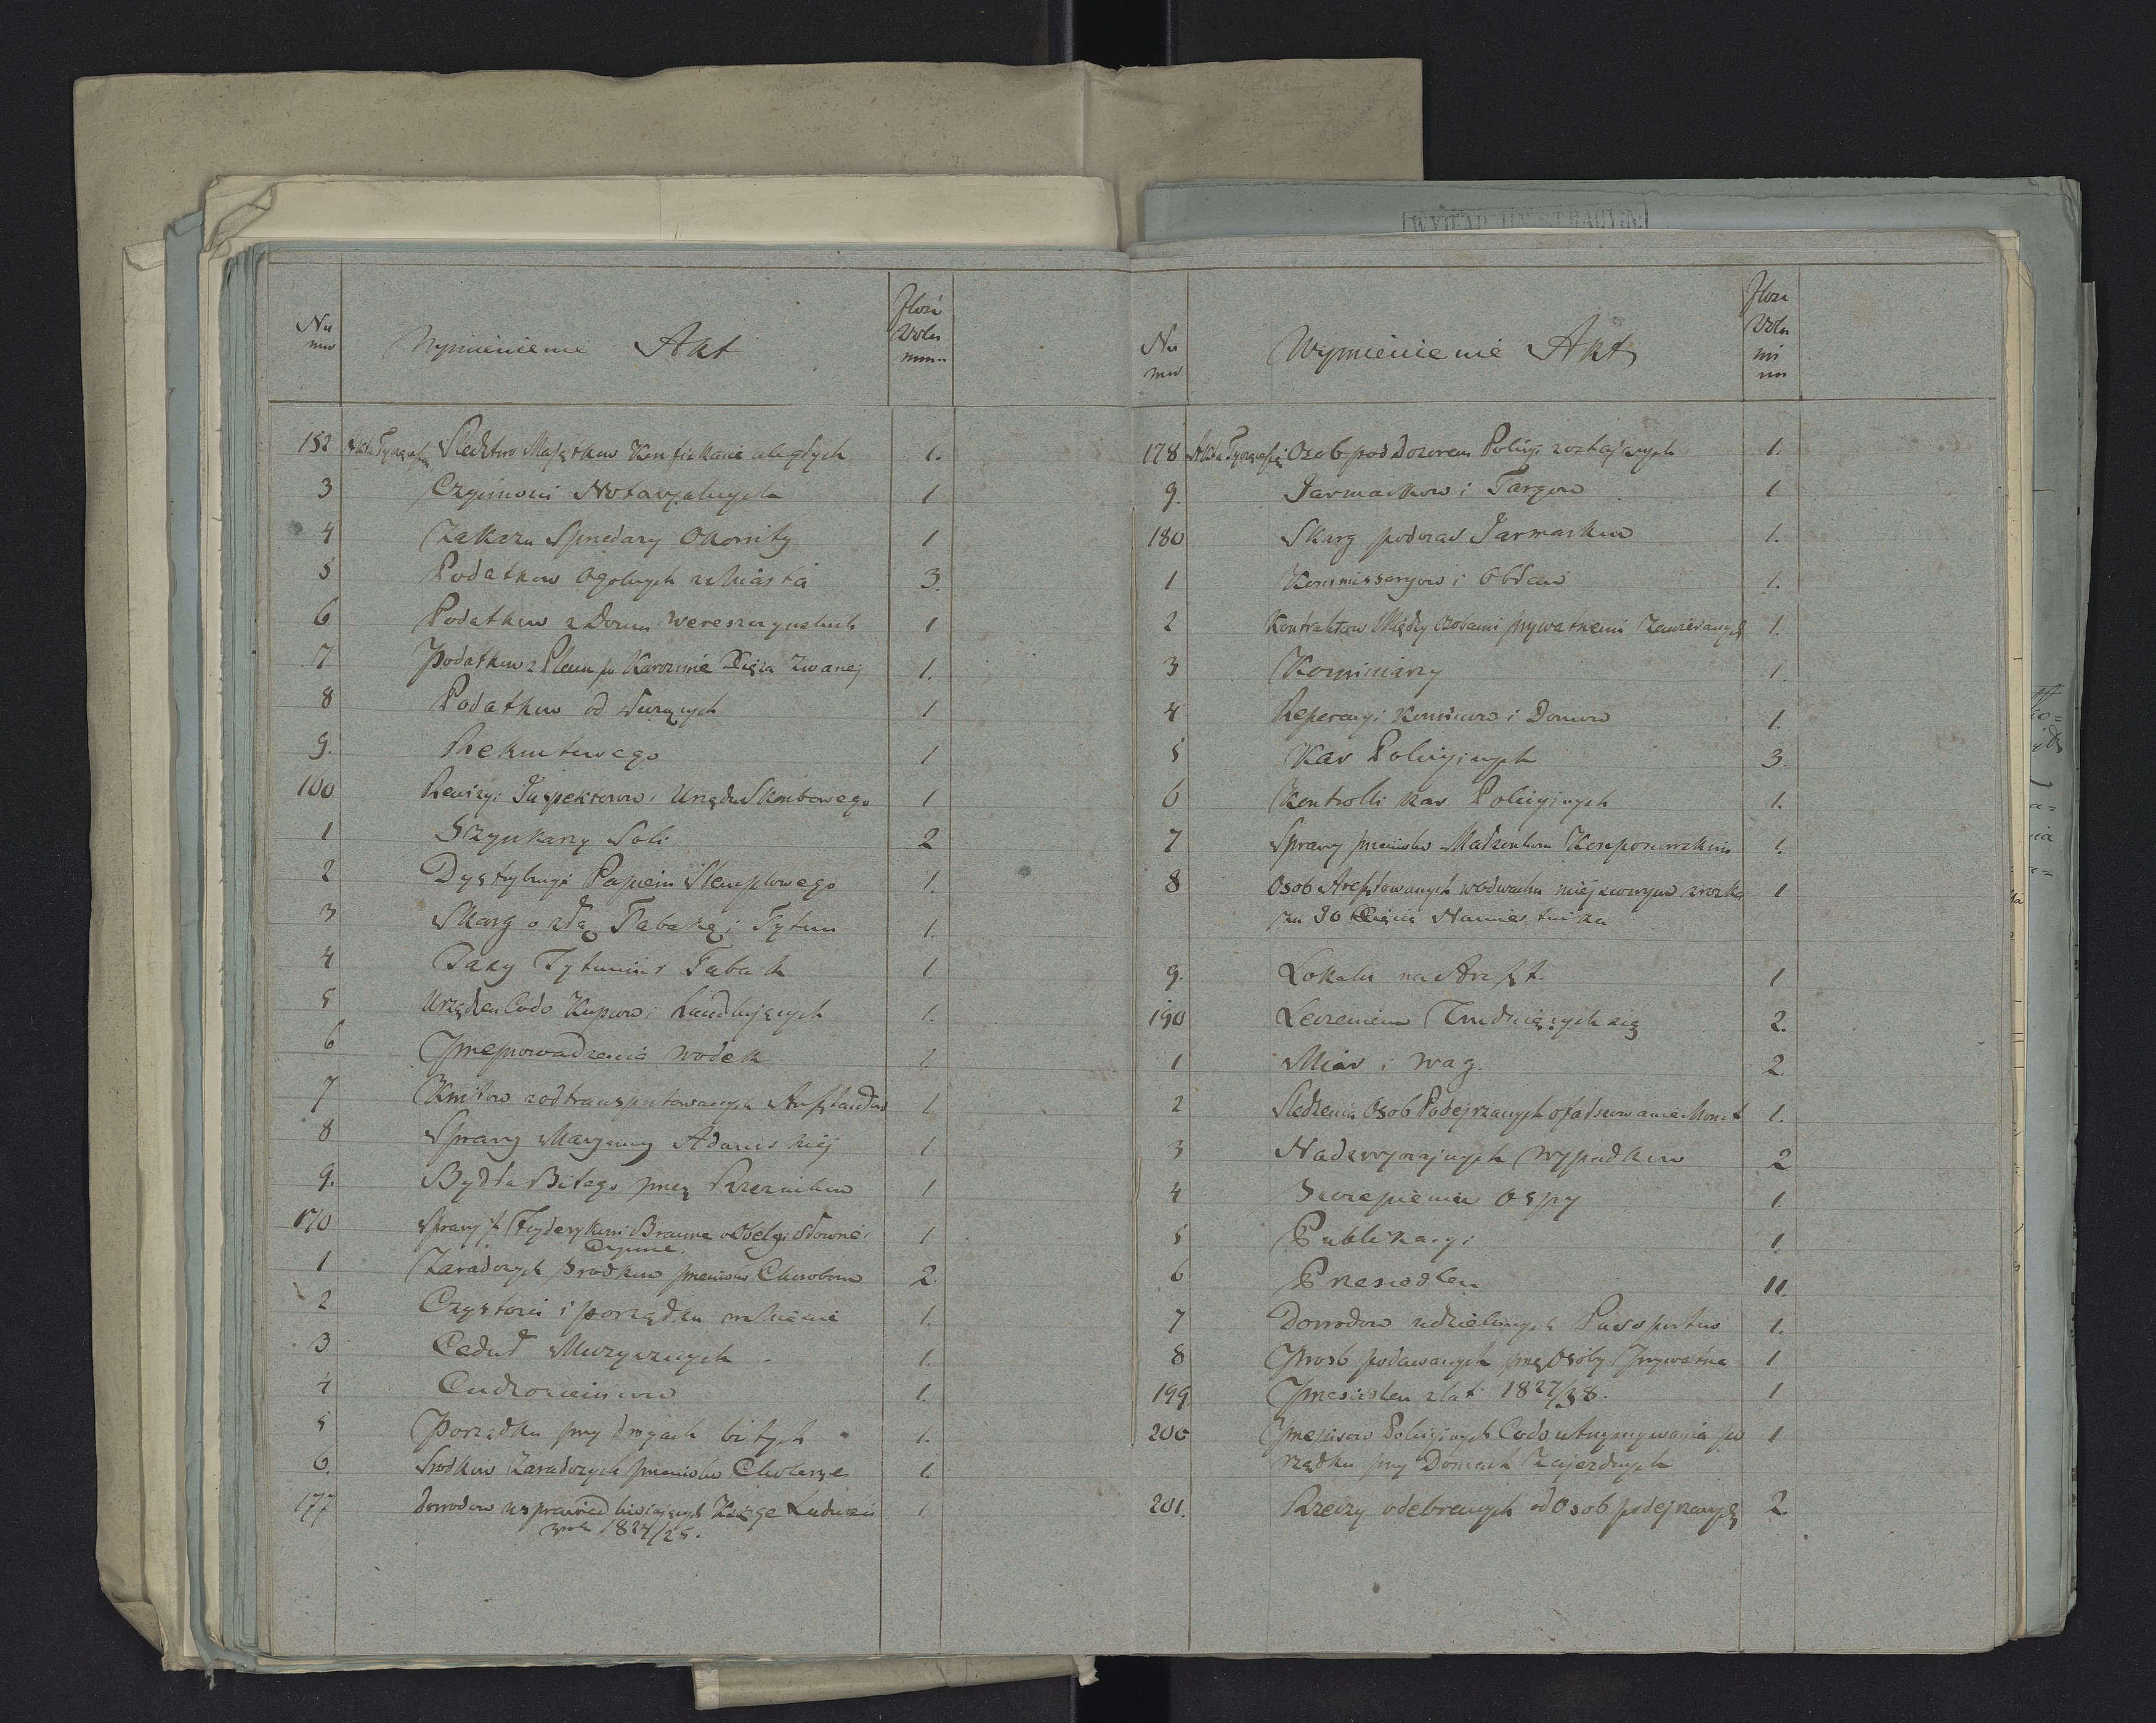 Nu
mer
Wymienienie Akt
Ilość
Wolu
mnn
152 Akta Tyczące się Sledztwo Majątków Konfiskacie uległych 1.
3 Czynności Notaryalnych 1
4 Zakazu Sprzedazy Okowity 1
5 Podatków Ogolnych z Miasta 3.
6 Podatkow z Domu Wereszczynskich 1
7 Podatkow z Placu po Karczmie Xięża Zwanej 1.
8 Podatkow od Służących 1
9. Rekrutowego 1
160 Rewizyi Inspektorow i Urzędu Skarbowego 1
1 Szynkarzy Soli 2
2 Dystrybucyi Papieru Stemplowego 1.
3 Skarg o złą Tabakę i Tytun 1.
4 Taxy Tytuniu i Tabak 1
5 Urządzeń Co do Kupcow i Handlujących 1.
6 Przeprowadzenia Wodek 1.
7 Kwitow z odtransportowanych Aresztantów 1
8 Sprawy Maryanny Adamskiej 1
9. Bydła Bitego przez Rzezników 1
170 Sprawy z Fryderykiem Braune o Obelgi Słowne i 1
Czynne.
1 Zaradczych Srodków przeciwko Chorobom 2.
2 Czystości i porządku w Mieście 1.
3 Ceduł Muzycznych 1.
4 Cudzoziemców 1.
5 Porządku przy drogach bitych 1.
6. Srodkow Zaradczych przeciwko Cholerze 1.
177 Dowodow usprawiedliwiających Księgę Ludności 1.
z roku 1824/25.
Nu
mer
Wymienienie Akt
Ilość
Wolu
mi
nn
178 Akta Tyczące się Osob pod Dozorem Policyi zostających 1.
9. Jarmarkow i Targow 1
180 Skarg podczas Jarmarkow 1.
1 Kommissarzow i Obław 1.
2 Kontraktow Między Osobami prywatnemi Zawieranych 1.
3 Kominiarzy 1.
4 Reperacyi Kominow i Domow 1.
5 Kar Policyjnych 3.
6 Kontrolli Kar Policyjnych 1.
7 Sprawy przeciwko Małżonkom 1.
8 Osob Aresztowanych w odwachu miejscowym z rozka 1
zu JO Xięcia Namiestnika
9. Lokalu na Areszt. 1
190 Leczeniem Trudniących się 2.
1 Miar i Wag. 2
2 Sledzenia Osob Podejrzanych o fałszowanie Monet 1.
3 Nadzwyczajnych Wypadkow 2
4 Szczepienia Ospy 1
5 Publikacyi 1
6 Przesiedlen 11
7 Dowodow udzielonych Passportow 1.
8 Prosb podawanych przez Osoby Prywatne 1
199 Przesiedlen z lat 1827/38. 1
200 Przepisow Policyjnych Co do utrzymywania po 1
rządku przy Domach Zajezdnych
201. Rzeczy odebranych od Osob podejrzanych 2.